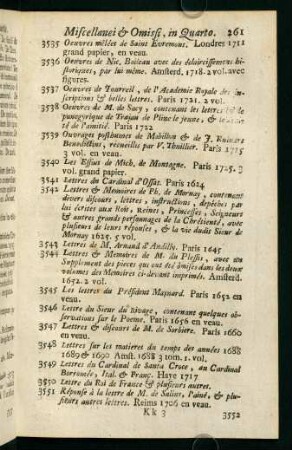 Miscellanei & Omissi, in Quarto. 261
3535 Oeuvres mêlées de Saint Evremont. Londres 1711
grand papier, en veau.
3536 Oeuvres de Nic. Boileau avec des éclaircissemens hi-
storiques, par lui même. Amsterd. 1718. 2 vol. avec
figures.
3537 Oeuvres de Tourreil, de l'Academie Royale des in-
scriptions & belles lettres. Paris 1721. 2 vol.
3538 Oeuvres de M. de Sacy, contenant les lettres &
panegyrique de Trajan de Pline le jeune, &
de l'amitié. Paris 1722
3539 Ouvrages posthumes de Mabillon & de J. Ruinart
Benedictins, recueillis par V. Thuillier. Paris
3 vol. en veau.
3540 Les Essais de Mich. de Montagne. Paris 1725. 3
vol. grand papier.
3541 Lettres du Cardinal d'Ossat. Paris 1624
3542 Lettres & Memoires de Ph. de Mornay, contenant
divers discours, lettres, instructions, depêches par
lui écrites aux Rois, Reines, Princesses, Seigneurs
& autres grands personnages de la Chrétienté, avec
plusieurs de leurs réponses, & la vie dudit Sieur de
Mornay 1625. 5 vol.
3543 Lettres de M. Arnaud d'Andilly. Paris 1645
3544 Lettres & Memoires de M. du Plessis, avec un
Supplement des pieces qui ont été omises dans les deux
volumes des Memoires ci-devant imprimés. Amsterd.
1652. 2 vol.
3545 Les lettres du Président Maynard. Paris 1652 en
veau.
3546 Lettre du Sieur du Rivage, contenant quelques ob-
servations sur le Poeme, Paris 1656 en veau.
3547 Lettres & discours de M. de Sorbiere. Paris 1660
en veau.
3548 Lettres sur les matieres du temps des années 1688
1689 & 1690 Amst. 1688 3 tom. 1. vol.
3549 Lettres du Cardinal de Santa Croce, au Cardinal
Borromée, Ital. & Franç. Haye 1717
3550 Lettre du Roi de France & plusieurs autres.
3551 Réponse à la lettre de M. de Saliut, Painé, & plu-
sieurs autres lettres. Reims 1706 en veau.
Kk 3 3552